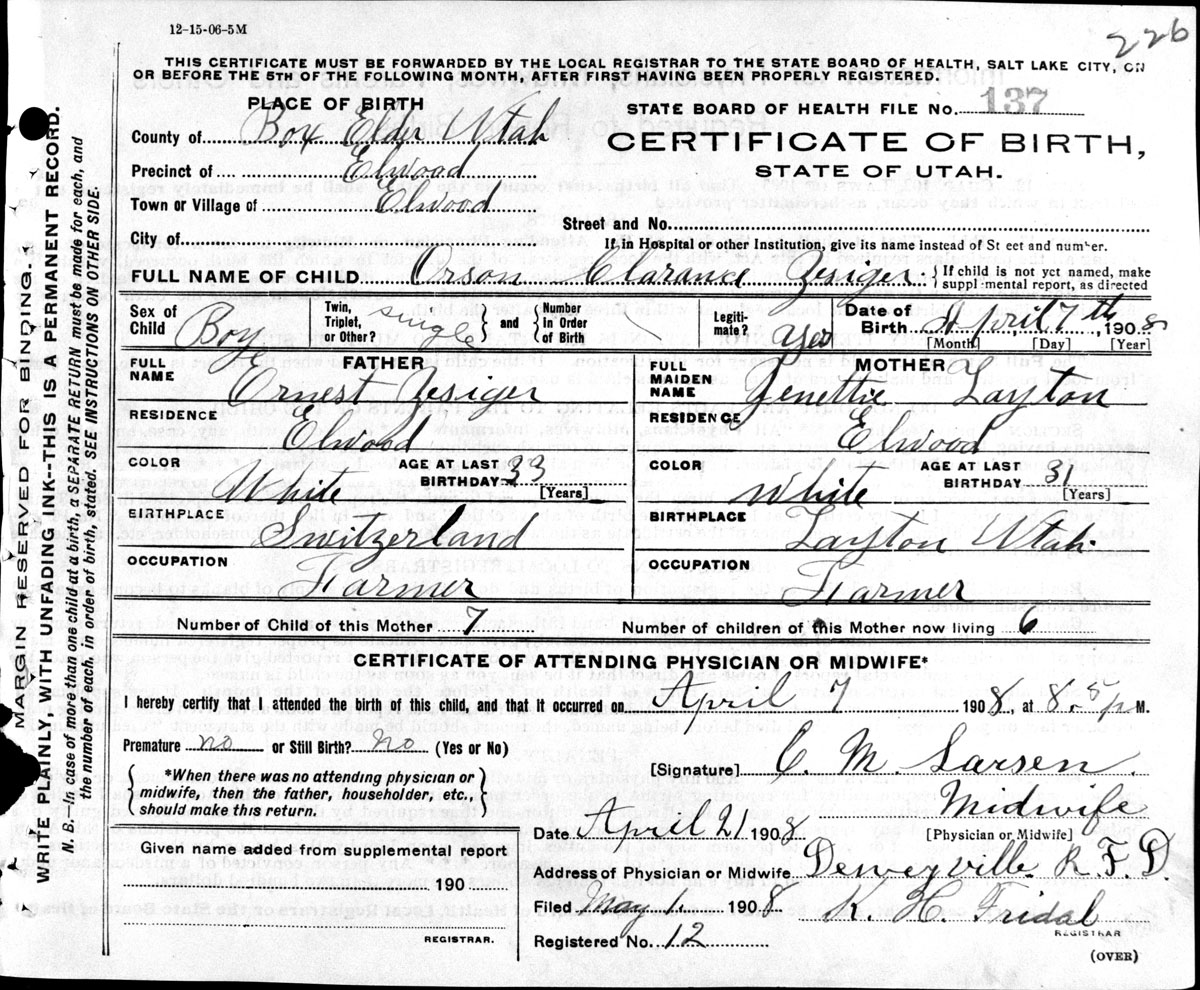 12-15-06-5M
226
THIS CERTIFICATE MUST BE FORWARDED BY THE LOCAL REGISTRAR TO THE STATE BOARD OF HEALTH, SALT LAKE CITY, ON
OR BEFORE THE 5TH OF THE FOLLOWING MONTH, AFTER FIRST HAVING BEEN PROPERLY REGISTERED.
PLACE OF BIRTH
STATE BOARD OF HEALTH FILE No. 137
County of Box Elder Utah
CERTIFICATE OF BIRTH,
Precinct of Elwood
STATE OF UTAH.
Town or Village of Elwood
Street and No.
City of
If in Hospital or other Institution, give its name instead of St eet and number.
FULL NAME OF CHILD Orson Clarance Zesiger
If child is not yet named, make
supplemental report, as directed
Sex of Child Boy
Twin, Triplet, or Other? single
and Number in Order of Birth
Legiti-mate? yes
Date of Birth April 7th, 1908
[Month] [Day] [Year]
FATHER
FULL NAME Ornest Zesiger
RESIDENCE Elwood
COLOR White
AGE AT LAST BIRTHDAY 23 [Years]
BIRTHPLACE Switzerland
OCCUPATION Farmer
MOTHER
FULL MAIDEN NAME Jenettie Layton
RESIDENCE Elwood
COLOR White
AGE AT LAST BIRTHDAY 31 [Years]
BIRTHPLACE Layton Utah.
OCCUPATION Farmer
Number of Child of this Mother 7
Number of children of this Mother now living 6
CERTIFICATE OF ATTENDING PHYSICIAN OR MIDWIFE*
I hereby certify that I attended the birth of this child, and that it occurred on April 7 1908, at 8.5 p M.
Premature no or Still Birth? no (Yes or No)
*When there was no attending physician or
midwife, then the father, householder, etc.,
should make this return.
[Signature] C. M. Larsen.
Midwife
[Physician or Midwife]
Date April 21 1908
Address of Physician or Midwife Deweyville R. F. D.
Filed May 1. 1908
K H. Fridal
REGISTRAR
Registered No. 12
(OVER)
Given name added from supplemental report
190
REGISTRAR.
MARGIN RESERVED FOR BINDING.
WRITE PLAINLY, WITH UNFADING INK--THIS IS A PERMANENT RECORD.
N. B.—In case of more than one child at a birth, a SEPARATE RETURN must be made for each, and
the number of each, in order of birth, stated. SEE INSTRUCTIONS ON OTHER SIDE.